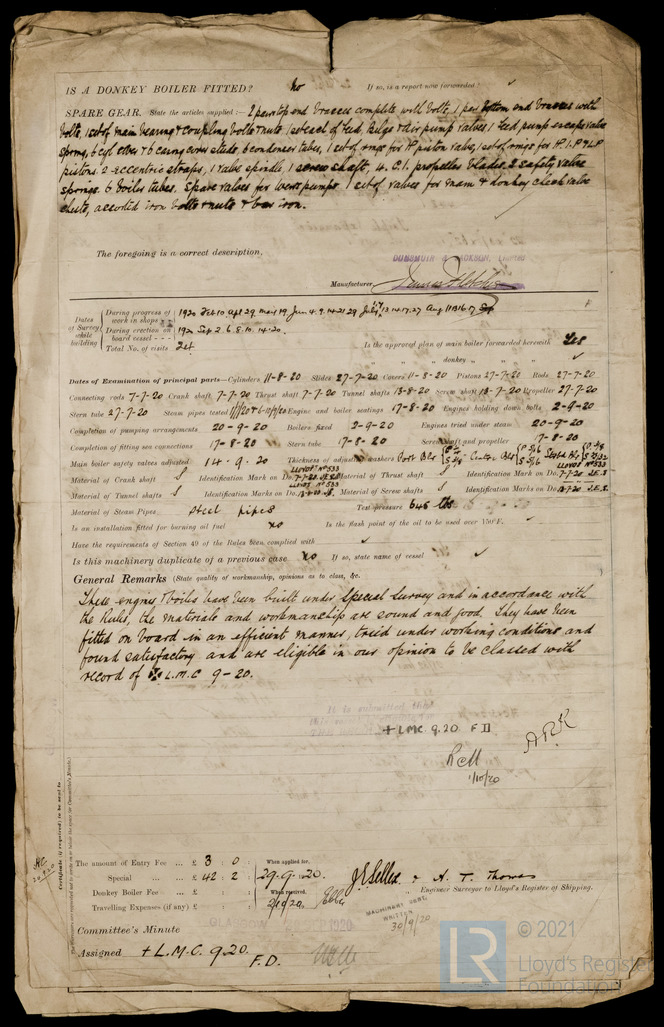 IS A DONKEY BOILER FITTED? no If so, is a report now forwarded? ✓
SPARE GEAR. State the articles supplied:— 2 pairs top end braces complete with bolts, 1 pair bottom end braces with
bolts, 1 set of main bearing & coupling bolts & nuts 1 set each of feed, bilge & air pump valves, 1 feed pump escape valve
spring, 6 cyl cover & 6 casing cover studs, 6 condenser tubes, 1 set of rings for HP piston valve, 1 set of rings for H.P. I.P & L.P
pistons. 2 eccentric straps, 1 valve spindle, 1 screw shaft, 4 C.I. propeller blades, 2 safety valve
springs. 6 boiler tubes. Spare valves for Weirs pumps. 1 set of valves for main & donkey check valve
chests, assorted iron bolts & nuts & bar iron.
The foregoing is a correct description,
DUNSMUIR & JACKSON, LIMITED
Manufacturer.
Dates of Survey while building
During progress of work in shops - - 1920 Feb 10 Apl 29 May 19 Jun 4. 9. 14. 21. 29 July 13. 14. 17. 27 Aug 11 13 16. 17
During erection on board vessel - - - 1920 Sep 2. 6. 8. 10. 14. 20.
Total No. of visits 24
Is the approved plan of main boiler forwarded herewith Yes
" " " donkey " " " ✓
Dates of Examination of principal parts—Cylinders 11-8-20 Slides 27-7-20 Covers 11-8-20 Pistons 27-7-20 Rods 27-7-20
Connecting rods 7-7-20 Crank shaft 7-7-20 Thrust shaft 7-7-20 Tunnel shafts 13-8-20 Screw shaft 13-7-20 Propeller 27-7-20
Stern tube 27-7-20 Steam pipes tested Engine and boiler seatings 17-8-20 Engines holding down bolts 2-9-20
Completion of pumping arrangements 20-9-20 Boilers fixed 2-9-20 Engines tried under steam 20-9-20
Completion of fitting sea connections 17-8-20 Stern tube 17-8-20 Screw shaft and propeller 17-8-20
Main boiler safety valves adjusted 14. 9. 20 Thickness of adjusting washers Port Blr P 3/8 S 3/8 Centre Blr P 5/16 S 5/16 Starbd Blr P 3/8 S
Material of Crank shaft S Identification Mark on Do. LLOYDS No 533 7-7-20 J.E.S Material of Thrust shaft S Identification Mark on Do. LLOYDS No 533 7-7-20 J.E.S
Material of Tunnel shafts S Identification Marks on Do. LLOYDS No 533 13-8-20 J.E.S Material of Screw shafts S Identification Marks on Do. 13-7-20 J.E.S.
Material of Steam Pipes Steel pipes Test pressure 645 lbs
Is an installation fitted for burning oil fuel no Is the flash point of the oil to be used over 150°F. ✓
Have the requirements of Section 49 of the Rules been complied with ✓
Is this machinery duplicate of a previous case no If so, state name of vessel ✓
General Remarks (State quality of workmanship, opinions as to class, &c.
These engines & boilers have been built under Special Survey and in accordance with
the Rules, the materials and workmanship are sound and good. They have been
fitted on board in an efficient manner, tried under working conditions and
found satisfactory and are eligible in our opinion to be classed with
record of + L.M.C 9-20.
It is submitted that
+ LMC 9.20 F D
RCM
1/10/20
ARR
Certificate (if required) to be sent to
The amount of Entry Fee ... £ 3 : 0 :
Special ... £ 42 : 2 :
Donkey Boiler Fee ... £ : :
Travelling Expenses (if any) £ : :
When applied for,
29.9.20.
When received,
2/10/20
J E Sellex & A. T. Thomas
Engineer Surveyor to Lloyd's Register of Shipping.
GLASGOW 1920
MACHINERY CERT. WRITTEN 30/9/20
Committee's Minute
Assigned + L.M.C. 9.20.
F.D.
LR
© 2021
Lloyd's Register
Foundation